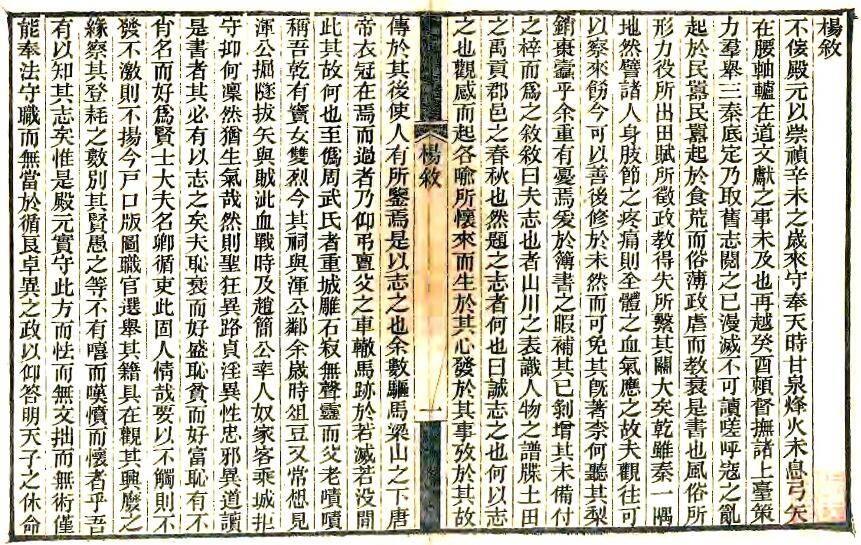 楊敘
不佞殿元以崇禎辛未之歲來守奉天時甘泉烽火未息弓矢
在腰軸轤在道文獻之事未及也再越癸酉賴督撫諸上臺策
力羣舉三秦底定乃取舊志閱之已漫滅不可讀嗟呼寇之亂
起於民嚚民嚚起於食荒而俗薄政虐而教衰是書也風俗所
形力役所出田賦所徵政教得失所繫其關大矣乾雖秦一隅
地然譬諸人身肢節之疼痛則全體之血氣應之故夫觀往可
以察來飭今可以善後修於未然而可免其旣著柰何聽其梨
銷棗蠹乎余重有憂焉爰於簿書之暇補其已剝增其未備付
之梓而爲之敘敘曰夫志也者山川之表識人物之譜牒土田
之禹貢郡邑之春秋也然題之志者何也曰誠志之也何以志
之也觀感而起各喻所懷來而生於其心發於其事攷於其故
楊敘
一
傳於其後使人有所鑒焉是以志之也余數驅馬梁山之下唐
帝衣冠在焉而過者乃仰弔亶父之車轍馬跡於若滅若沒閒
此其故何也至僞周武氏者重城雕石寂無聲靈而父老嘖嘖
稱吾乾有竇女雙烈今其祠與渾公鄰余歲時俎豆又常想見
渾公掘隧拔矢與賊泚血戰時及趙簡公率人奴家客乘城拒
守抑何凜然猶生氣哉然則聖狂異路貞淫異性忠邪異道讀
是書者其必有以志之矣夫恥衰而好盛恥貧而好富恥有不
肖名而好爲賢士大夫名卿循吏此固人情哉要以不觸則不
發不激則不揚今戶口版圖職官選舉其籍具在觀其興廢之
緣察其登耗之數別其賢愚之等不有嘻而嘆憤而懷者乎吾
有以知其志矣惟是殿元實守此方而怯而無文拙而無術僅
能奉法守職而無當於循良卓異之政以仰答明天子之休命